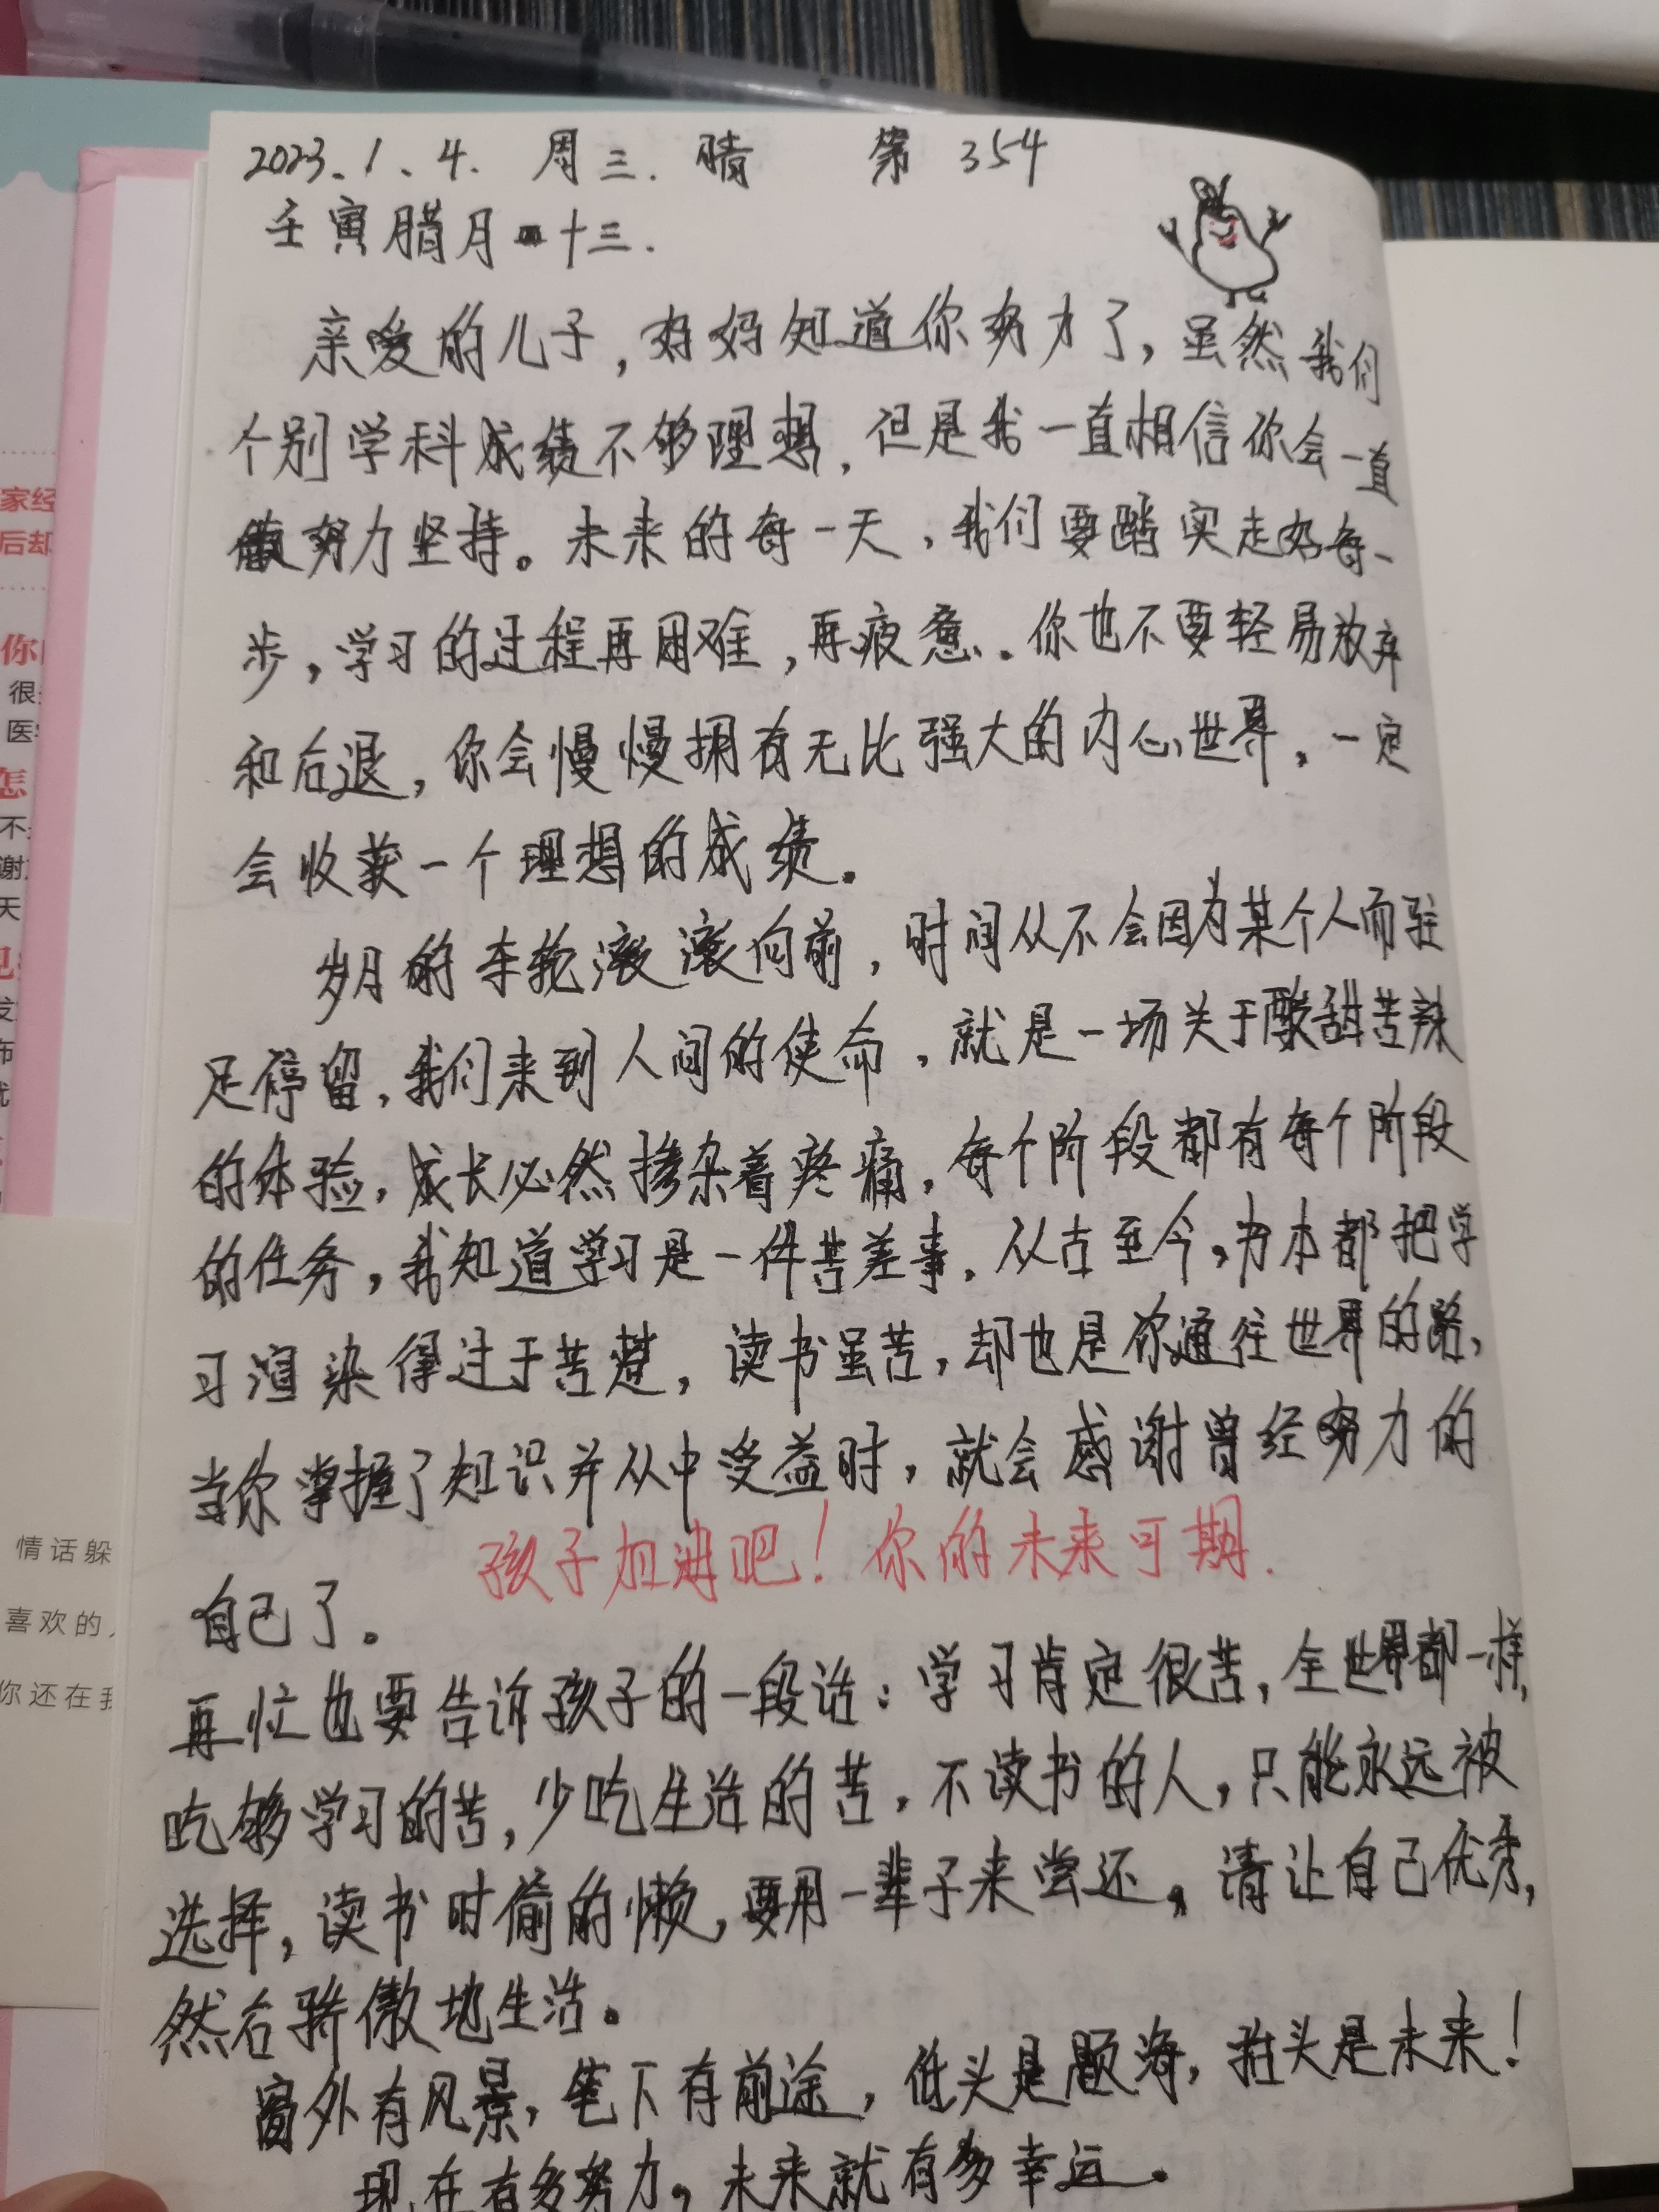 2023.1.4. 周三. 晴 第 354
壬寅腊月 十三.
亲爱的儿子，妈妈知道你努力了，虽然我们
个别学科成绩不够理想，但是我一直相信你会一直
做努力坚持。未来的每一天，我们要踏实走好每一
步，学习的过程再困难，再疲惫。你也不要轻易放弃
和后退，你会慢慢拥有无比强大的内心世界，一定
会收获一个理想的成绩。
岁月的车轮滚滚向前，时间从不会因为某个人而驻
足停留，我们来到人间的使命，就是一场关于酸甜苦辣
的体验，成长必然掺杂着疼痛，每个阶段都有每个阶段
的任务，我知道学习是一件苦差事，从古至今，书本都把学
习渲染得过于苦楚，读书虽苦，却也是你通往世界的路，
当你掌握了知识并从中受益时，就会感谢曾经努力的
孩子加油吧！你的未来可期.
自己了。
再忙也要告诉孩子的一段话：学习肯定很苦，全世界都一样，
吃够学习的苦，少吃生活的苦，不读书的人，只能永远被
选择，读书时偷的懒，要用一辈子来尝还。请让自己优秀，
然后骄傲地生活。
窗外有风景，笔下有前途，低头是题海，抬头是未来！
现在有多努力，未来就有多幸运。
家经
后却
你
很
医
怎
不
谢
天
情话躲
喜欢的
你还在我